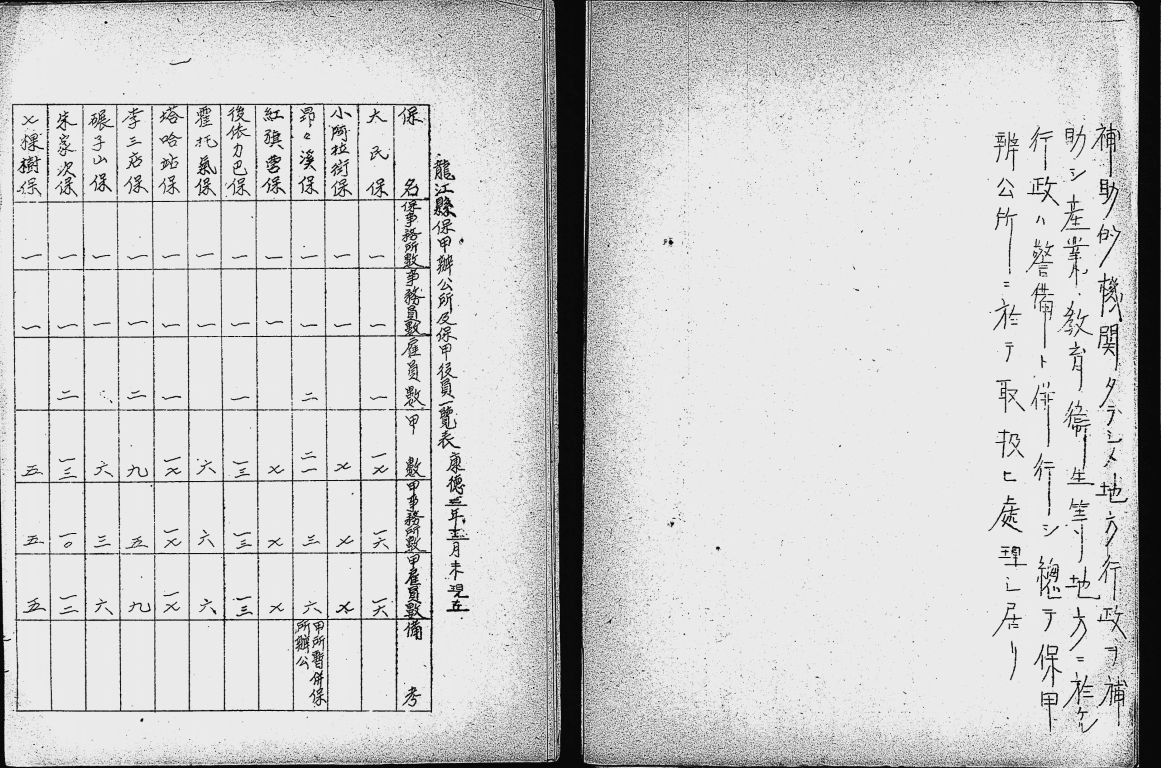 補助的機関タラシメ地方行政ヲ補
助シ産業、教育衛生等ノ地方ニ於ケル
行政ハ警備ト併行シ總テ保甲
辦公所ニ於テ取扱ヒ處理シ居リ
一
龍江縣保甲辦公所及保甲役員一覽表 康德三年五月末現在
保名 保事務所數 事務員數 雇員數 甲數 甲事務所數 甲雇員數 備考
大民保 一 一 一 一七 一六 一六
小阿拉街保 一 一 七 七 七
昂々溪保 一 一 二 二一 三 六 甲所暫併保所辦公
紅旗雲保 一 一 七 七 七
後依力巴保 一 一 一 一三 一三 一三
霍托氣保 一 一 六 六 六
塔哈站保 一 一 一 一七 一七 一七
李三店保 一 一 二 九 五 九
碾子山保 一 一 六 三 六
朱家次保 一 一 二 一三 一〇 一二
七棵樹保 一 一 五 五 五